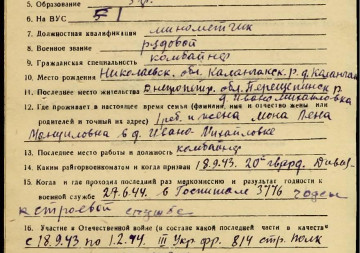 5. Образование
6. На ВУС 5
7. Должностная квалификация минометчик
8. Военное звание рядовой
9. Гражданская специальность комбайнер
10. Место рождения Николаевск. обл. р. д.
11. Последнее место жительства обл. д. Ивано Михайловка
12. Где проживает в настоящее время семья (фамилия, имя и отчество жены или
родителей и точный их адрес) жена
в д. Ивано Михайловке
13. Последнее место работы и должность комбайнер
14. Каким райгорвоенкоматом и когда призван 18.9.43. 20 гвард.
15. Когда и где проходил последний раз медкомиссию и результат годности к
военной службе 29.6.44. в Госпитали 3776 годен
к строевой службе
16. Участие в Отечественной войне (в составе какой последней части в качестве
с 18.9.43 по 1.2.44. III Укр. фр. 814 стр. полк